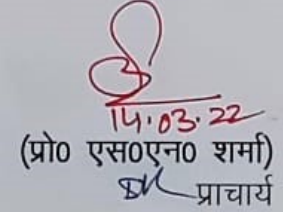 14.03.22
(प्रो0 एस0एन0 शर्मा)
प्राचार्य